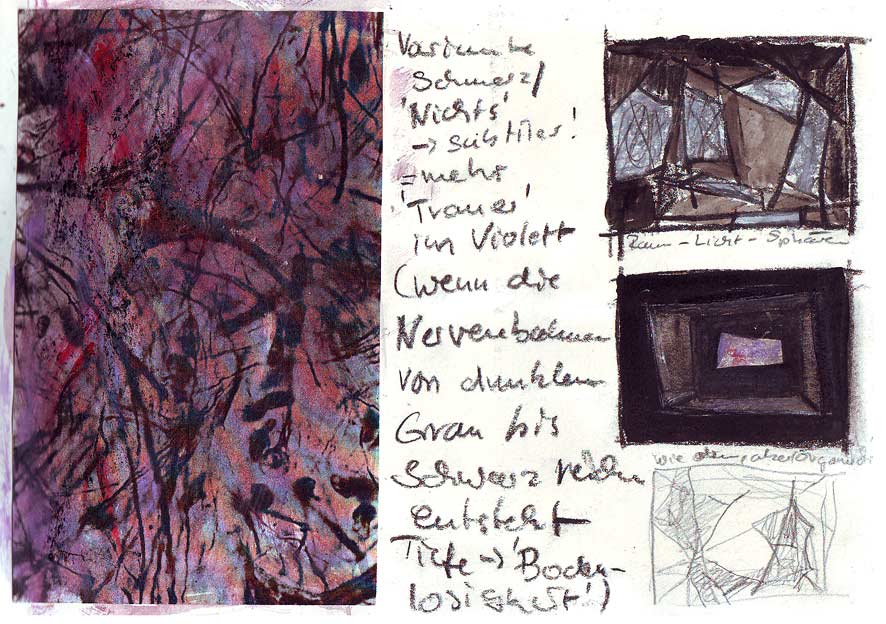 Variante
Schmerz/
'Nichts'
→ subtiler!
= mehr
'Trauer'
im Violett
(wenn die
Nervenbahnen
von dunklem
Grau bis
Schwarz reichen
entsteht
Tiefe → 'Boden-
losigkeit')
Raum - Licht - Sphären
wie oben, aber